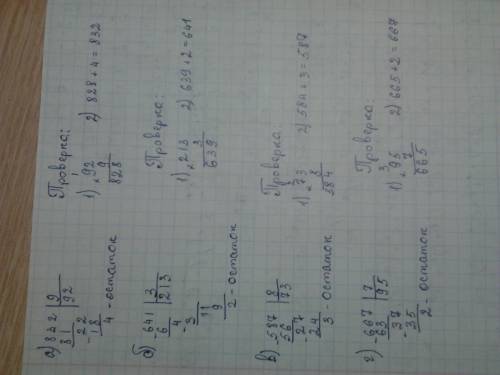 а) 832 | 9
81 | 92
- 22
18
4 - остаток
Проверка:
1) × 92
9
828
2) 828 + 4 = 832
б) - 641 | 3
6 | 213
- 4
3
11
9
2 - остаток
Проверка:
1) × 213
3
639
2) 639 + 2 = 641
в) - 587 | 8
56 | 73
- 27
24
3 - остаток
Проверка:
2
1) × 73
8
584
2) 584 + 3 = 587
г) - 667 | 7
63 | 95
- 37
35
2 - остаток
Проверка:
3
1) × 95
7
665
2) 665 + 2 = 667